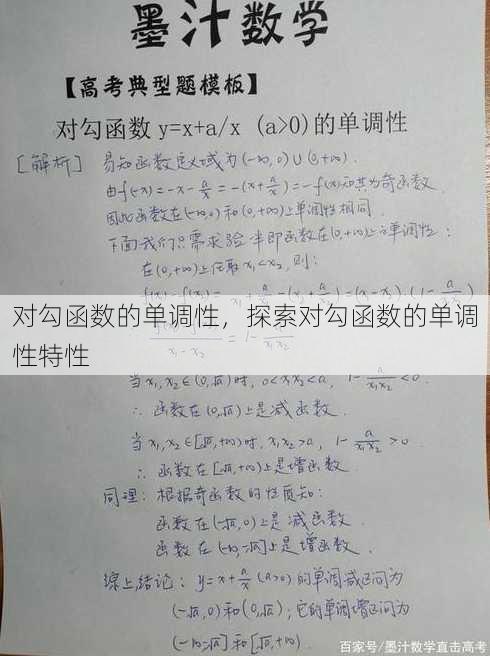 墨汁数学
【高考典型题模板】
对勾函数 y=x+a/x (a>0)的单调性
[解析] 易知函数定义域为(-∞,0)∪(0,+∞).
由f(-x)=-x-a/x=-(x+a/x)=-f(x)知其为奇函数.
因此函数在(-∞,0)和(0,+∞)上单调性相同.
下面我们只需求
在(0,+∞)上任取x₁<x₂,则:
对勾函数的单调性，探索对勾函数的单调
性特性
x₁-x₂
当x₁,x₂∈(0,√a)时, 0<x₁x₂<a, 1-a/x₁x₂<0.
∴函数在(0,√a)上是减函数.
当x₁,x₂∈[√a,+∞)时, x₁x₂>a, 1-a/x₁x₂>0
∴函数在[√a,+∞)上是增函数.
同理:根据奇函数的性质知:
函数在(-√a,0)上是减函数.
函数在(-∞,-√a]上是增函数.
综上,结论: y=x+a/x (a>0)的单调减区间为
(-√a,0)和(0,√a);它的单调增区间为
(-∞,-√a]和[√a,+∞).
百家号/墨汁数学直击高考